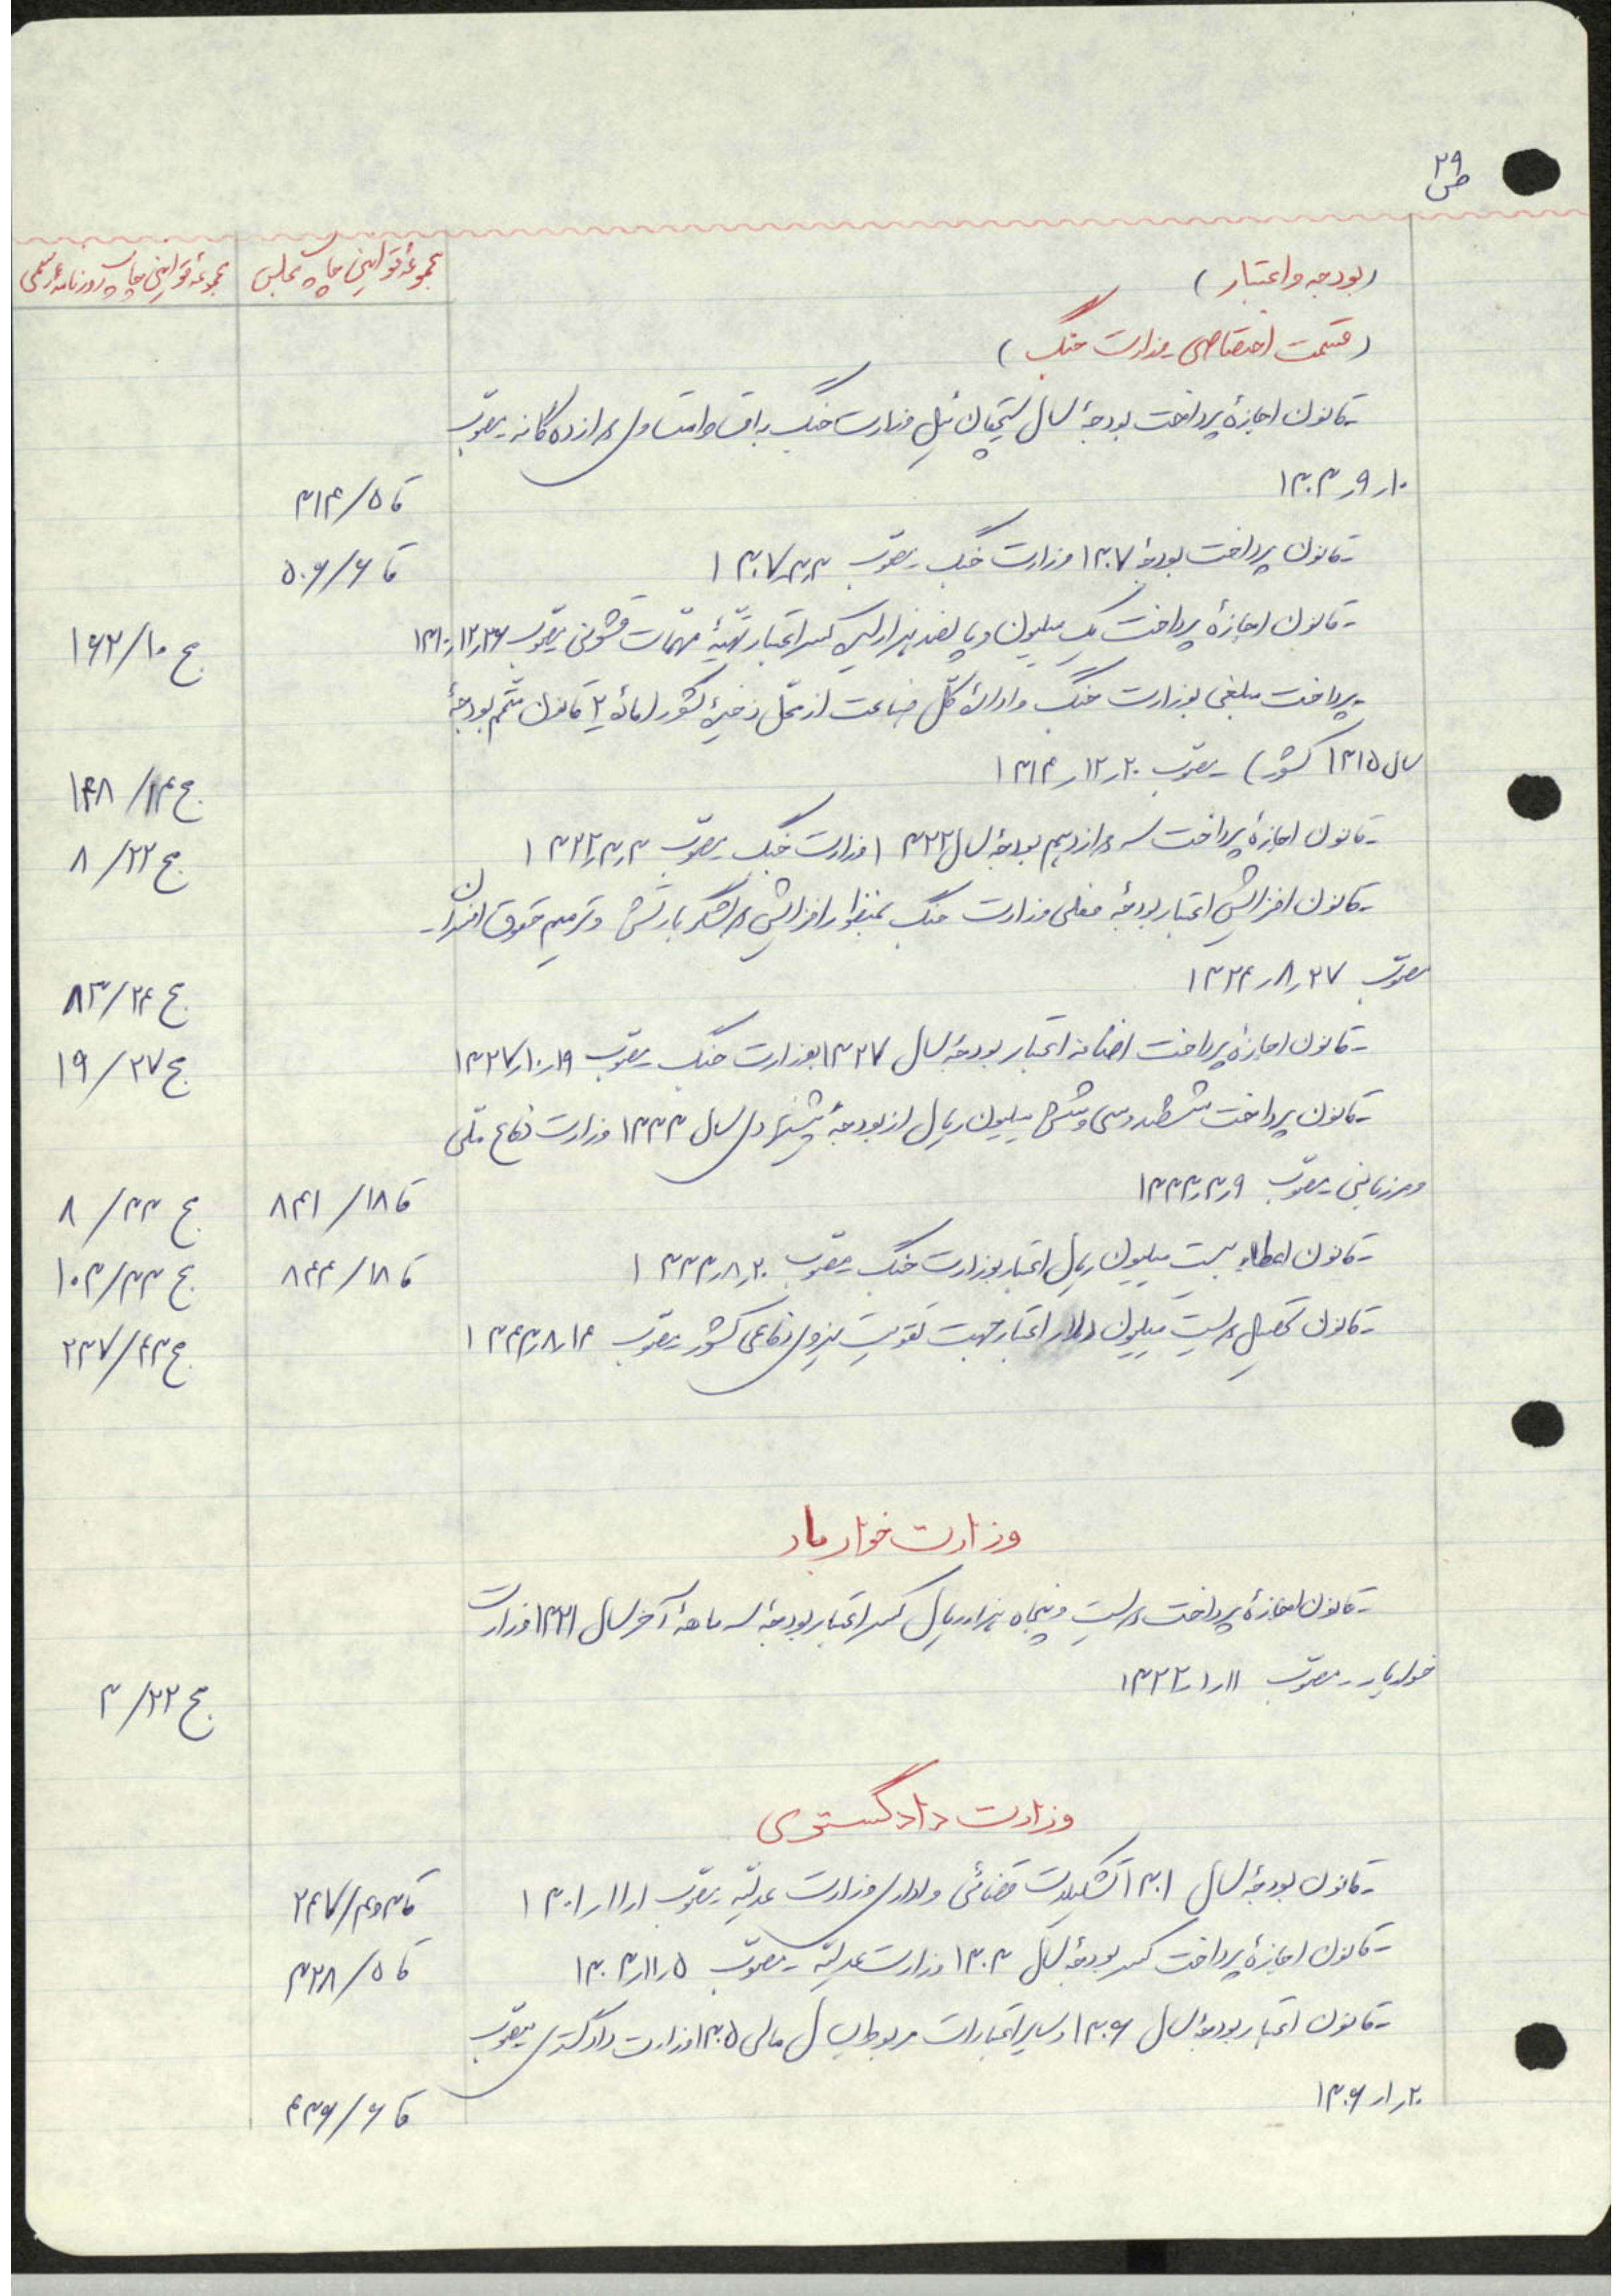 ۲۹
ص
(بودجه و اعتبار)
مجموعهٔ قوانین چاپ مجلس
مجموعهٔ قوانین چاپ روزنامه رسمی
(قسمت اختصاصی وزارت جنگ)
- قانون اجازهٔ پرداخت بودجهٔ سال سیچقان ئیل وزارت جنگ باقساط متساوی دوازده گانه - مصوب
۱۰ر۹ر۱۳۰۳
قا ۵/ ۳۱۴
- قانون پرداخت بودجهٔ ۱۳۰۷ وزارت جنگ - مصوب ۳ر۳ر۱۳۰۷
قا ۶/ ۵۰۶
- قانون اجازهٔ پرداخت یک میلیون و پانصد هزار لیره کسر اعتبار تهیهٔ مهمات قشونی - مصوب ۲۶ر۱۲ر۱۳۱۰
ج ۱۰/ ۱۶۲
- پرداخت مبلغی بوزارت جنگ و ادارهٔ کل صناعت از محل ذخیرهٔ کشور (مادهٔ ۲ قانون متمم بودجهٔ
سال ۱۳۱۵ کشور) - مصوب ۲۰ر۱۲ر۱۳۱۴
ج ۱۴/ ۱۴۸
- قانون اجازهٔ پرداخت سه دوازدهم بودجهٔ سال ۱۳۲۲ وزارت جنگ - مصوب ۳ر۳ر۱۳۲۲
ج ۲۲/ ۸
- قانون افزایش اعتبار بودجهٔ فعلی وزارت جنگ بمنظور افزایش دو لشگر بارتش و ترمیم حقوق افسران -
مصوب ۲۷ر۸ر۱۳۲۴
ج ۲۴/ ۸۳
- قانون اجازهٔ پرداخت اضافه اعتبار بودجهٔ سال ۱۳۲۷ بوزارت جنگ - مصوب ۱۹ر۱۰ر۱۳۲۷
ج ۲۷/ ۱۹
- قانون پرداخت ششصد و سی و شش میلیون ریال از بودجهٔ پیشنهادی سال ۱۳۳۳ وزارت دفاع ملی
و مرزبانی - مصوب ۹ر۳ر۱۳۳۳
قا ۱۸/ ۸۴۱
ج ۳۳/ ۸
- قانون اعطاء بیست میلیون ریال اعتبار بوزارت جنگ - مصوب ۲۰ر۸ر۱۳۳۳
قا ۱۸/ ۸۴۴
ج ۳۳/ ۱۰۳
- قانون تحصیل دویست میلیون دلار اعتبار جهت تقویت نیروی دفاعی کشور - مصوب ۱۴ر۸ر۱۳۴۳
ج ۴۳/ ۲۳۷
وزارت خواربار
- قانون اجازهٔ پرداخت دویست و پنجاه هزار ریال کسر اعتبار بودجهٔ سه ماههٔ آخر سال ۱۳۲۱ وزارت
خواربار - مصوب ۱۱ر۱ر۱۳۲۲
ج ۲۲/ ۳
وزارت دادگستری
- قانون بودجهٔ سال ۱۳۰۱ تشکیلات قضائی و اداری وزارت عدلیه - مصوب ۱ر۱۱ر۱۳۰۱
قا ۳و۴/ ۲۴۷
- قانون اجازهٔ پرداخت کسر بودجهٔ سال ۱۳۰۳ وزارت عدلیه - مصوب ۵ر۱۱ر۱۳۰۳
قا ۵/ ۳۲۸
- قانون اعتبار بودجهٔ سال ۱۳۰۶ و سایر اعتبارات مربوط بسال مالی ۱۳۰۵ وزارت دادگستری - مصوب
۲۰ر۱ر۱۳۰۶
قا ۶/ ۴۳۶